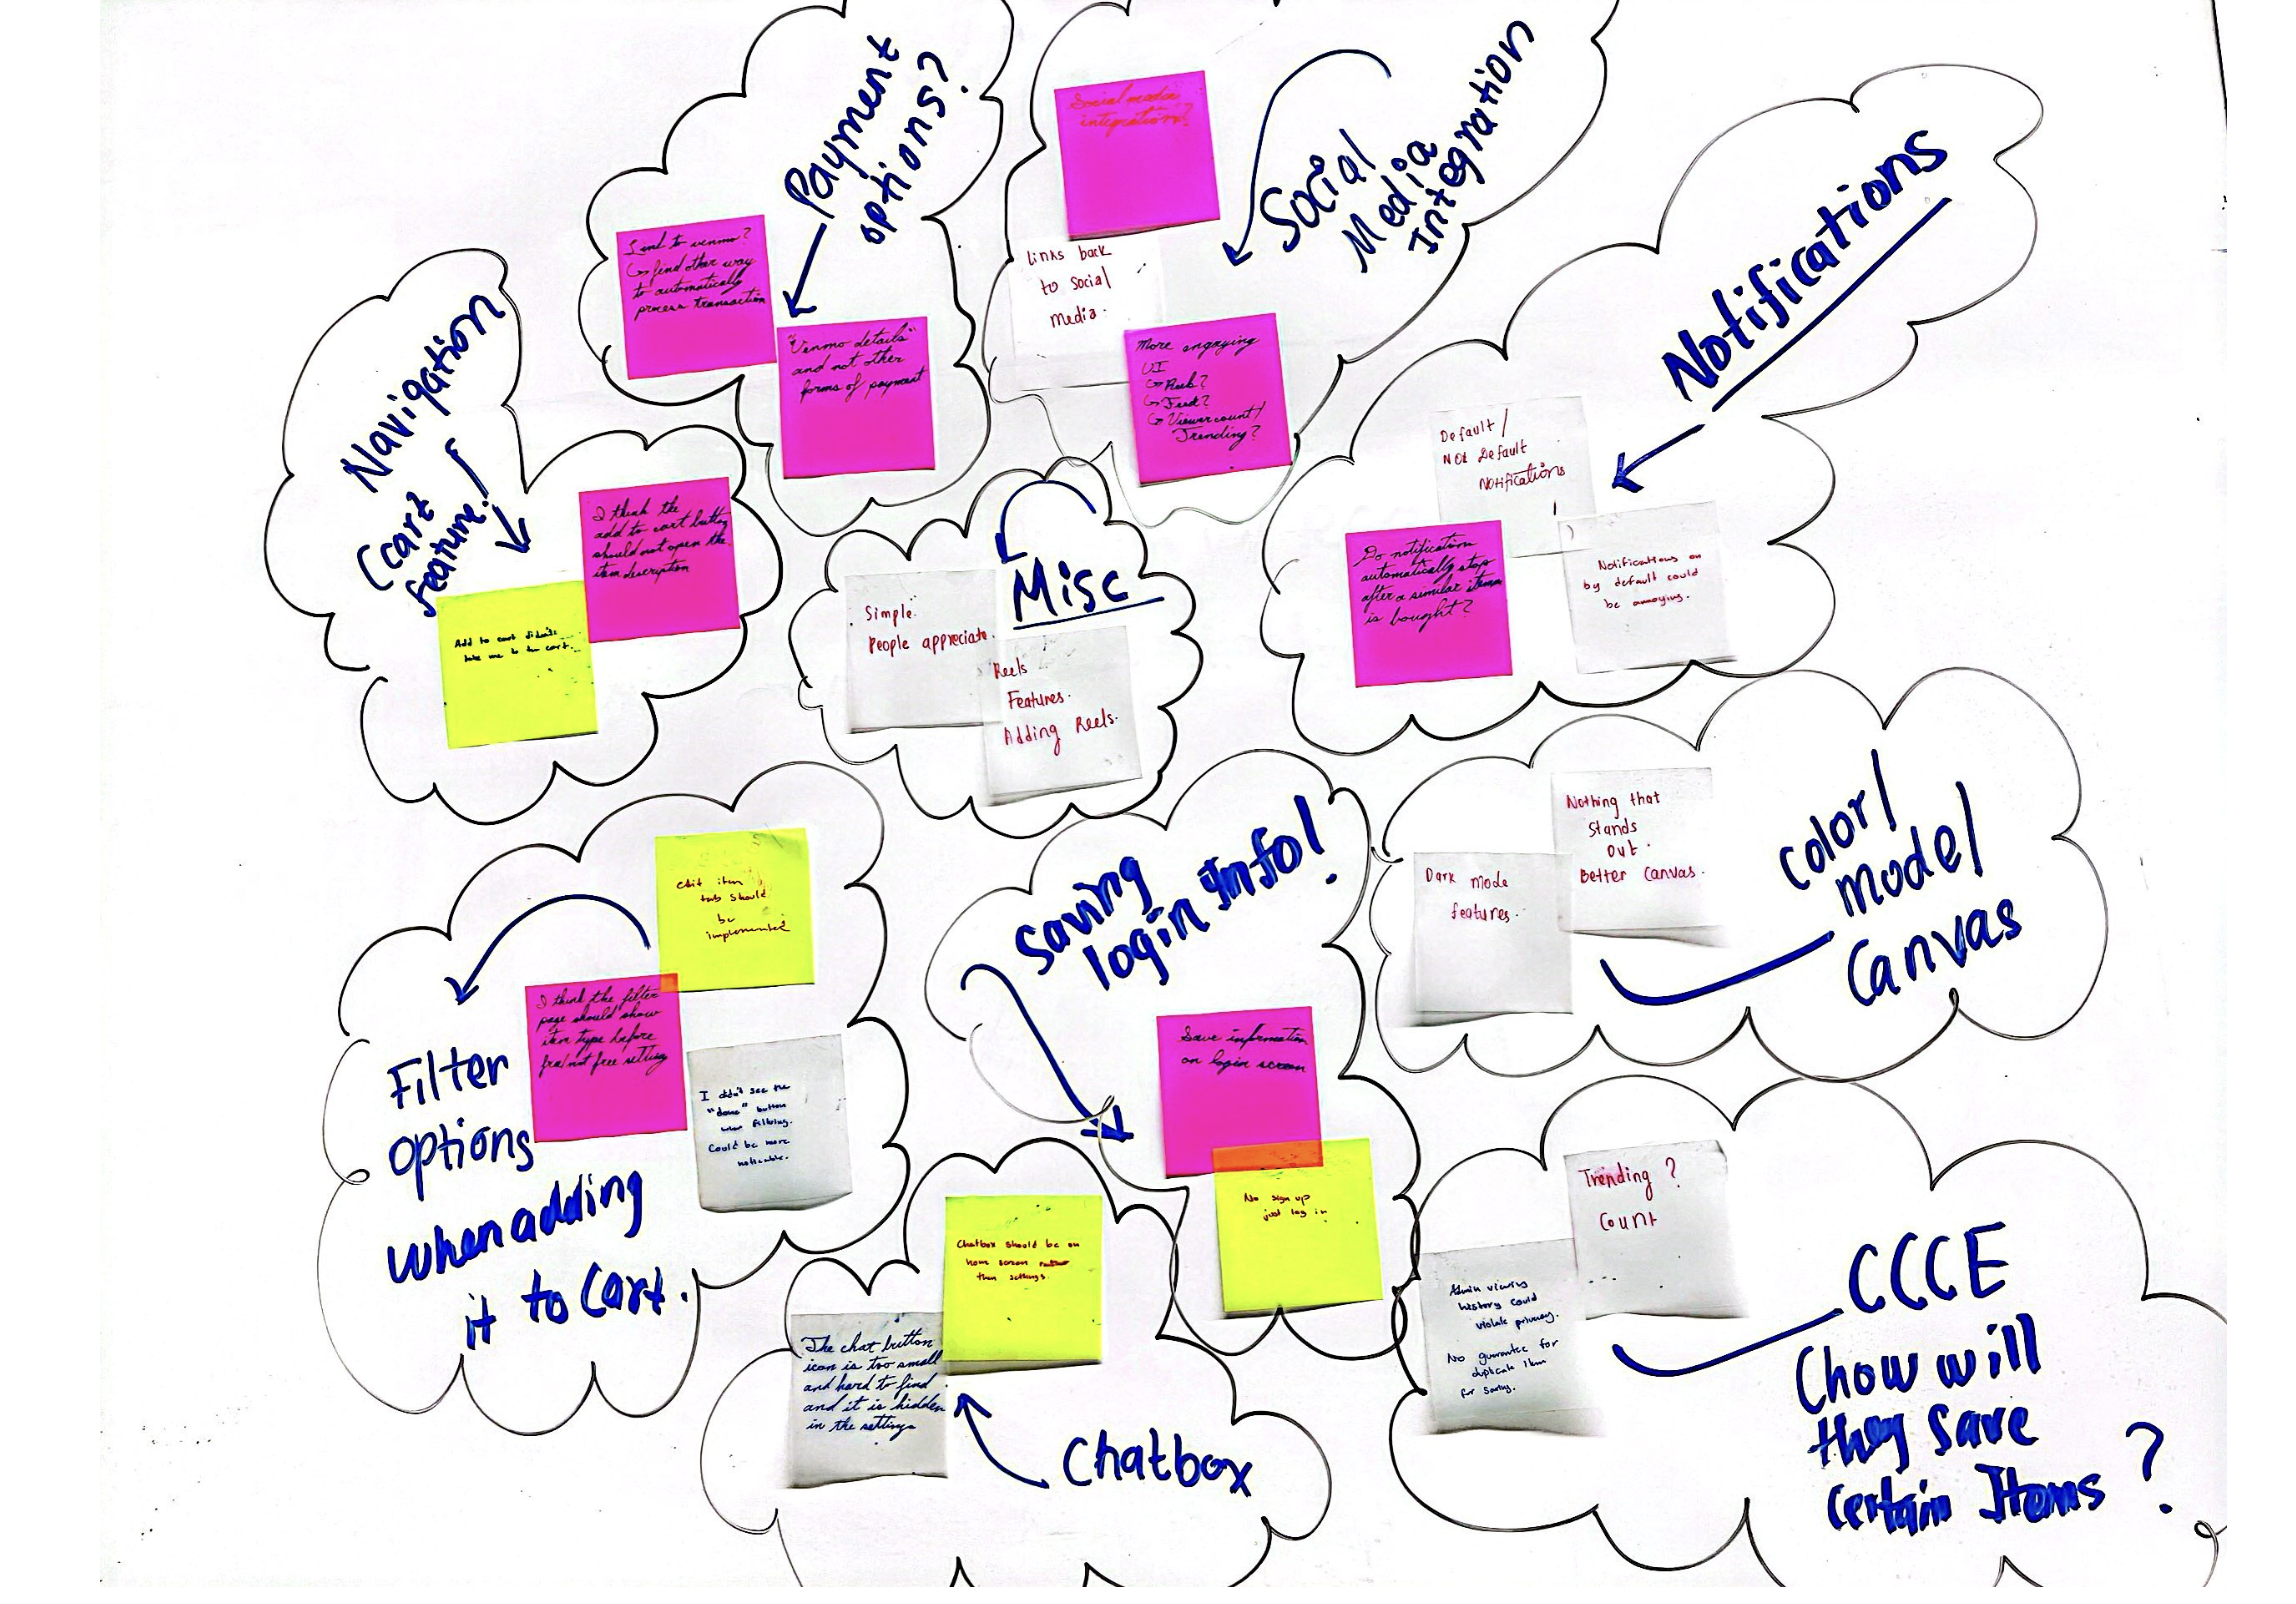 Payment
options?
Link to venmo?
↳ find other way
to automatically
process transaction
"Venmo details"
and not other
forms of payment
Social media
integration?
Social
Media
Integration
Links back
to social
media.
More engaging
UI
↳ Reels?
↳ Feed?
↳ Viewer count/
Trending?
Notifications
Default /
Not Default
Notifications
Do notification
automatically stop
after a similar item
is bought?
Notifications on
by default could
be annoying.
Navigation
(cart
feature!
I think the
add to cart button
should not open the
item description
Add to cart didn't
take me to the cart.
Misc
Simple.
People appreciate.
Reels
Features.
Adding Reels.
Filter
options
when adding
it to Cart.
edit item
tab should
be
implemented
I think the filter
page should show
item type before
free/not free setting
I didn't see the
"done" button
when filtering.
Could be more
noticeable.
Saving
login Info!
Save information
on login screen
No sign up
just log in
color/
model
Canvas
Nothing that
Stands
out.
Better Canvas.
Dark mode
features.
Chatbox
Chatbox should be on
home screen rather
than settings.
The chat button
icon is too small
and hard to find
and it is hidden
in the settings
CCCE
Chow will
they Save
Certain Items ?
Trending ?
Count
Admin viewing
history could
violate privacy.
No guarantee for
duplicate item
for saving.